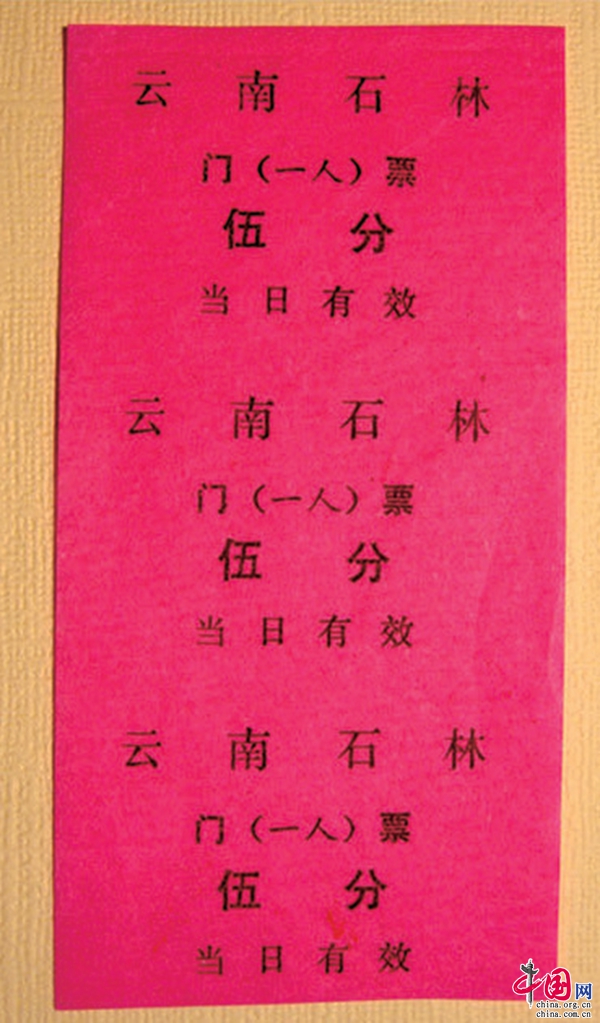 云南石林
门（一人）票
伍分
当日有效
云南石林
门（一人）票
伍分
当日有效
云南石林
门（一人）票
伍分
当日有效
中国网
china.org.cn
china.com.cn